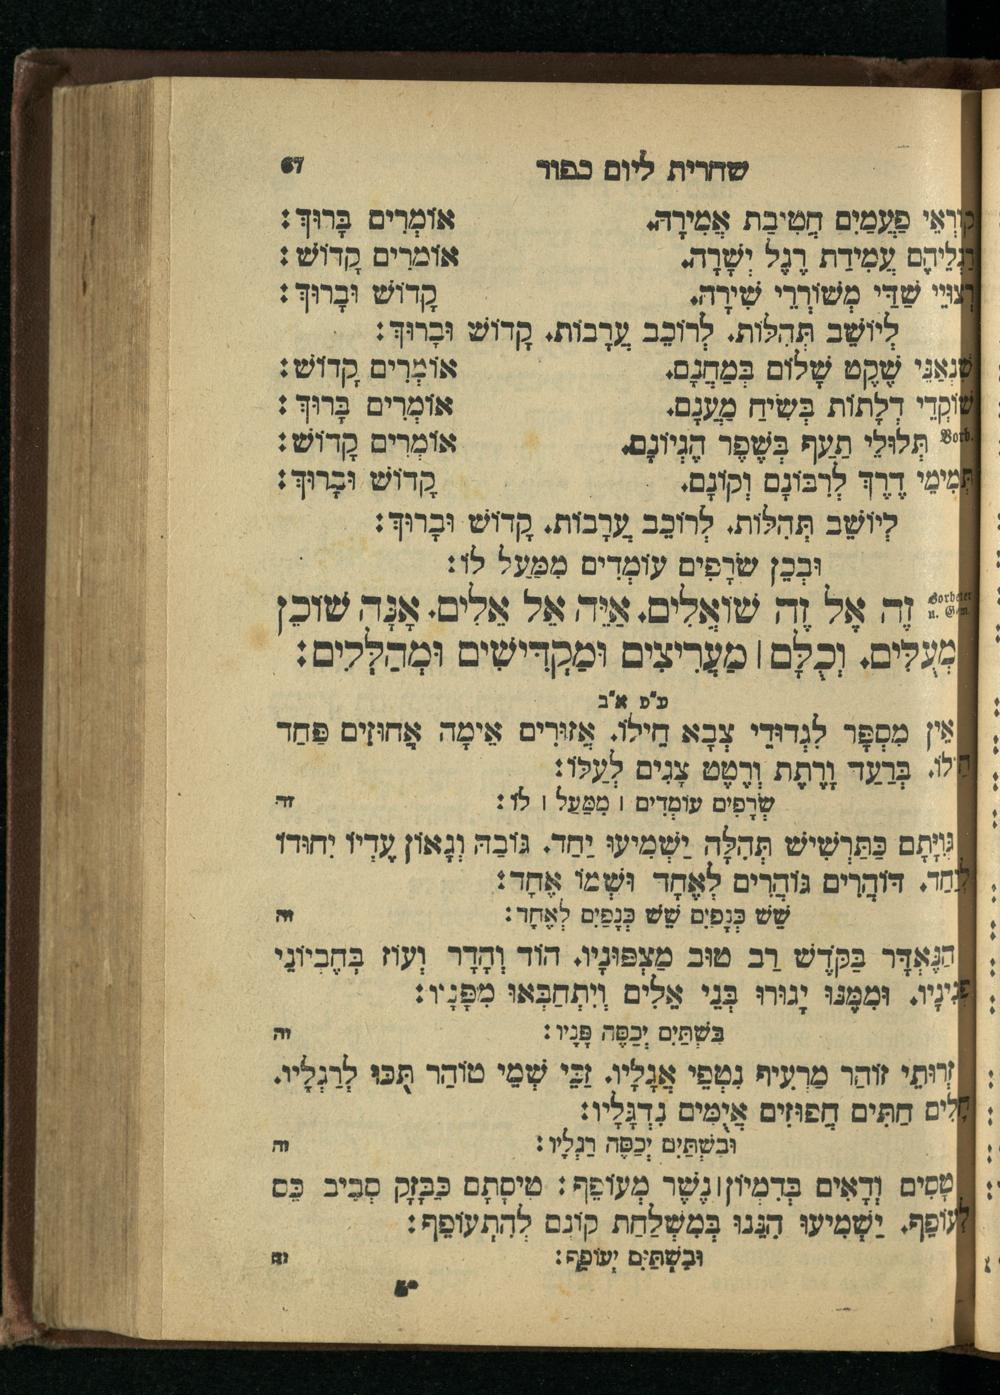 שחרית ליום כפור 67
קוראֵי פַעֲמַיִם חֲטִיבַת אֲמִירָה. אוֹמְרִים בָּרוּךְ:
רַגְלֵיהֶם עֲמִידַת רֶגֶל יְשָׁרָה. אוֹמְרִים קָדוֹשׁ:
רְצוּיֵי שַׁדַּי מְשׁוֹרְרֵי שִׁירָה. קָדוֹשׁ וּבָרוּךְ:
לְיוֹשֵׁב תְּהִלּוֹת. לְרוֹכֵב עֲרָבוֹת. קָדוֹשׁ וּבָרוּךְ:
שִׁנְאַנֵּי שֶׁקֶט שָׁלוֹם בְּמַחֲנָם. אוֹמְרִים קָדוֹשׁ:
שׁוֹקְדֵי דְלָתוֹת בְּשִׂיחַ מַעֲנָם. אוֹמְרִים בָּרוּךְ:
Vorb. תְּלוּלֵי תַעַף בְּשֶׁפֶר הֶגְיוֹנָם. אוֹמְרִים קָדוֹשׁ:
תְּמִימֵי דֶרֶךְ לְרִבּוֹנָם וְקוֹנָם. קָדוֹשׁ וּבָרוּךְ:
לְיוֹשֵׁב תְּהִלּוֹת. לְרוֹכֵב עֲרָבוֹת. קָדוֹשׁ וּבָרוּךְ:
וּבְכֵן שְׂרָפִים עוֹמְדִים מִמַּעַל לוֹ:
Vorbeter u. Gem. זֶה אֶל זֶה שׁוֹאֲלִים. אַיֵּה אֵל אֵלִים. אָנָּה שׁוֹכֵן
מְעֻלִּים. וְכֻלָּם | מַעֲרִיצִים וּמַקְדִּישִׁים וּמְהַלְּלִים:
ע״פ א״ב
אֵין מִסְפָּר לִגְדוּדֵי צְבָא חֵילוֹ. אֲזוּרִים אֵימָה אֲחוּזִים פַּחַד
חִילוֹ. בְּרַעַד וָרֶתֶת וְרֶטֶט צָגִים לְעֻלּוֹ:
שְׂרָפִים עוֹמְדִים | מִמַּעַל | לוֹ: זה
גְּוִיָּתָם כַּתַּרְשִׁישׁ תְּהִלָּה יַשְׁמִיעוּ יַחַד. גּוֹבַהּ וְגָאוֹן עֶדְיוֹ יִחוּדוֹ
לַחַד. דּוֹהֲרִים גּוֹהֲרִים לְאֶחָד וּשְׁמוֹ אֶחָד:
שֵׁשׁ כְּנָפַיִם שֵׁשׁ כְּנָפַיִם לְאֶחָד: זה
הַנֶּאְדָּר בַּקֹּדֶשׁ רַב טוּב מַצְפּוּנָיו. הוֹד וְהָדָר וְעוֹז בְּחֶבְיוֹנֵי
פְּנִינָיו. וּמִמֶּנּוּ יָגוּרוּ בְּנֵי אֵלִים וְיִתְחַבְּאוּ מִפָּנָיו:
בִּשְׁתַּיִם יְכַסֶּה פָּנָיו: זה
זְרוּתֵי זוֹהַר מַרְעִיף נִטְפֵי אֲגָלָיו. זַכֵּי שְׁמֵי טוֹהַר תֻּכּוּ לְרַגְלָיו.
חָלִים חַתִּים חֲפוּזִים אֲיֻמִּים נִדְגָּלָיו:
וּבִשְׁתַּיִם יְכַסֶּה רַגְלָיו: זה
טָסִים וְדָאִים בְּדִמְיוֹן | נֶשֶׁר מְעוֹפֵף: טִיסָתָם כַּבָּזָק סְבִיב כֵּס
לְעוֹפֵף. יַשְׁמִיעוּ הִנֵּנוּ בְּמִשְׁלַחַת קוֹנָם לְהִתְעוֹפֵף:
וּבִשְׁתַּיִם יְעוֹפֵף: זה